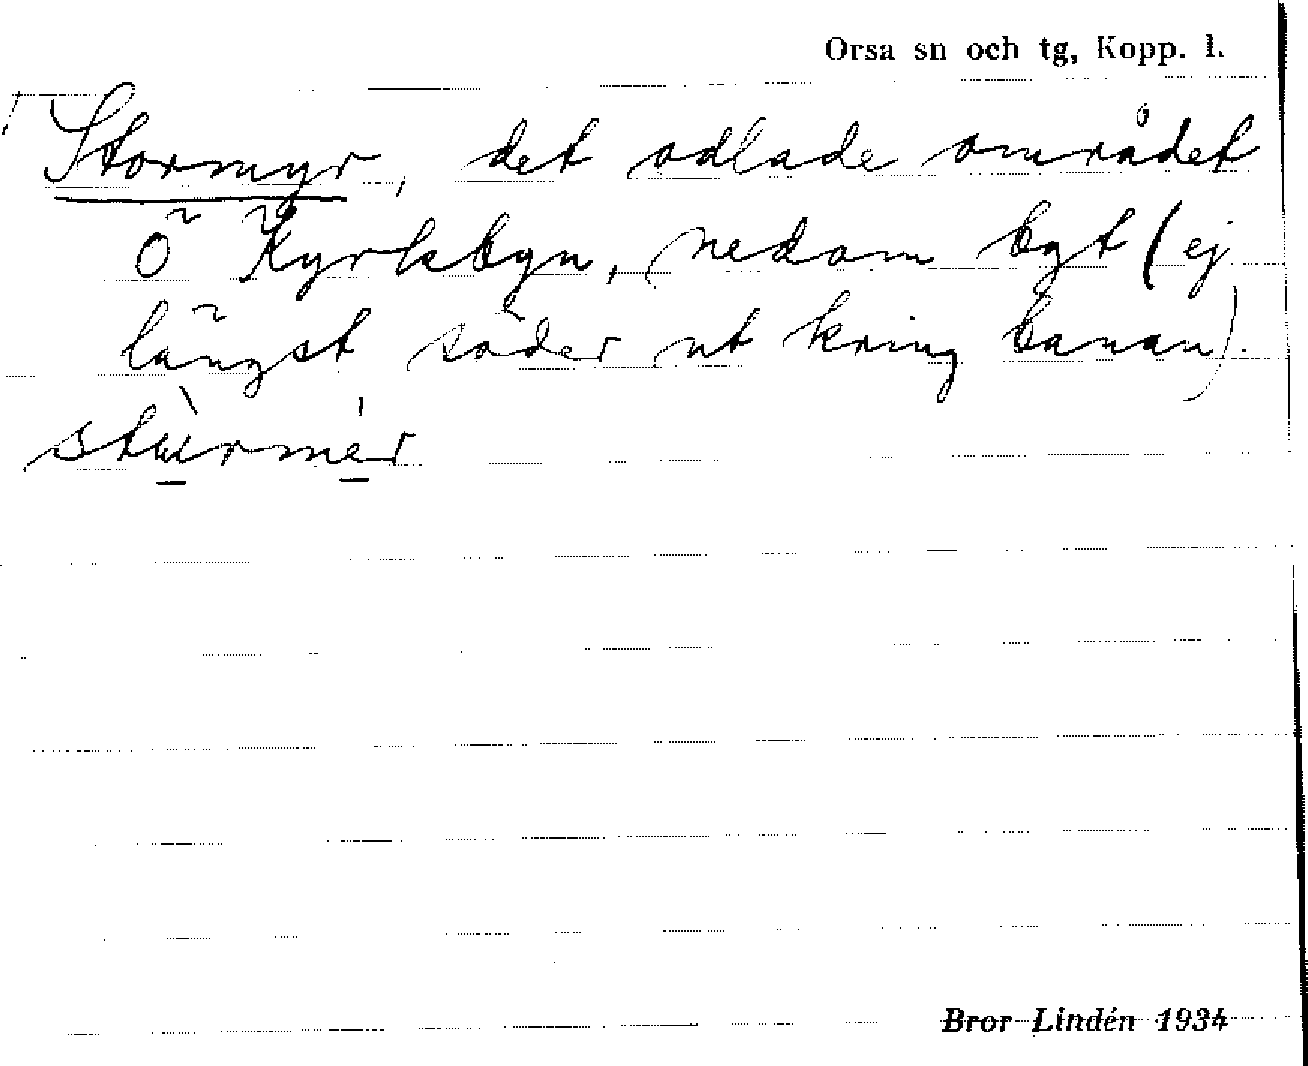 Orsa sn och tg, Kopp. l.
Stormyr, det odlade området
Ö Kyrkbyn, nedom bgt (ej
längst söder ut kring banan).
stùrmér
Bror Lindén 1934